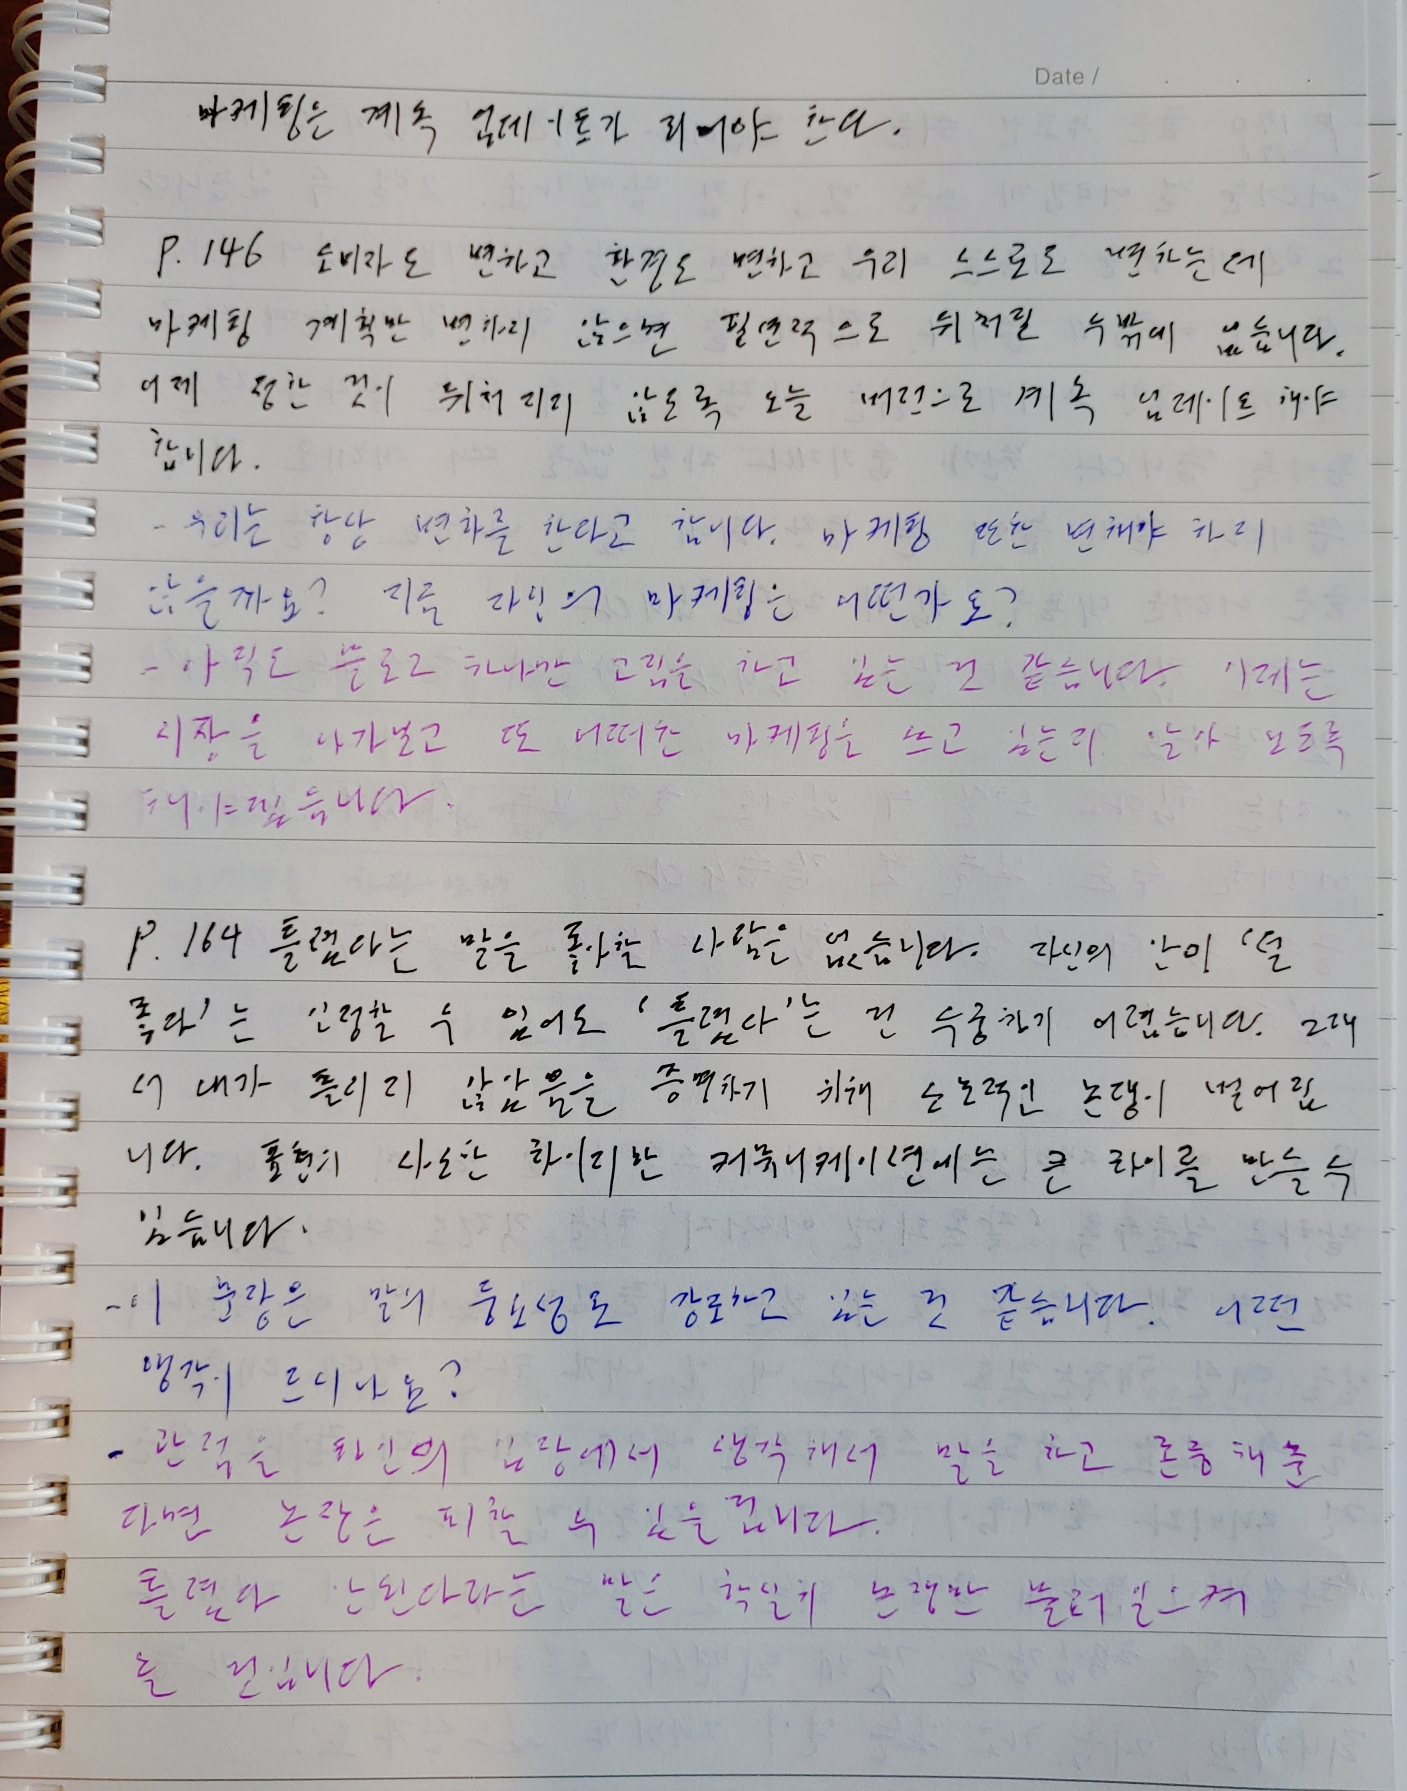 Date / . . .
마케팅은 계속 업데이트가 되어야 한다.
P. 146 소비자도 변하고 환경도 변하고 우리 스스로도 변하는데
마케팅 계획만 변하지 않으면 필연적으로 뒤처질 수밖에 없습니다.
어제 정한 것이 뒤처지지 않도록 오늘 버전으로 계속 업데이트 해야
합니다.
- 우리는 항상 변화를 한다고 합니다. 마케팅 또한 변해야 하지
않을까요? 지금 자신의 마케팅은 어떤가요?
- 아직도 블로그 하나만 고집을 하고 있는 것 같습니다. 이제는
시장을 나가보고 또 어떠한 마케팅을 쓰고 있는지 알아 보도록
해야겠습니다.
P. 164 틀렸다는 말을 좋아할 사람은 없습니다. 자신의 안이 '덜
좋다'는 인정할 수 있어도 '틀렸다'는 건 수긍하기 어렵습니다. 그래
서 내가 틀리지 않았음을 증명하기 위해 소모적인 논쟁이 벌어집
니다. 표현의 사소한 차이지만 커뮤니케이션에는 큰 차이를 만들 수
있습니다.
- 이 문장은 말의 중요성도 강조하고 있는 것 같습니다. 어떤
생각이 드시나요?
- 관점을 타인의 입장에서 생각해서 말을 하고 존중해준
다면 논쟁은 피할 수 있을 겁니다.
틀렸다 안된다라는 말은 확실히 논쟁만 불러 일으켜
들 것입니다.